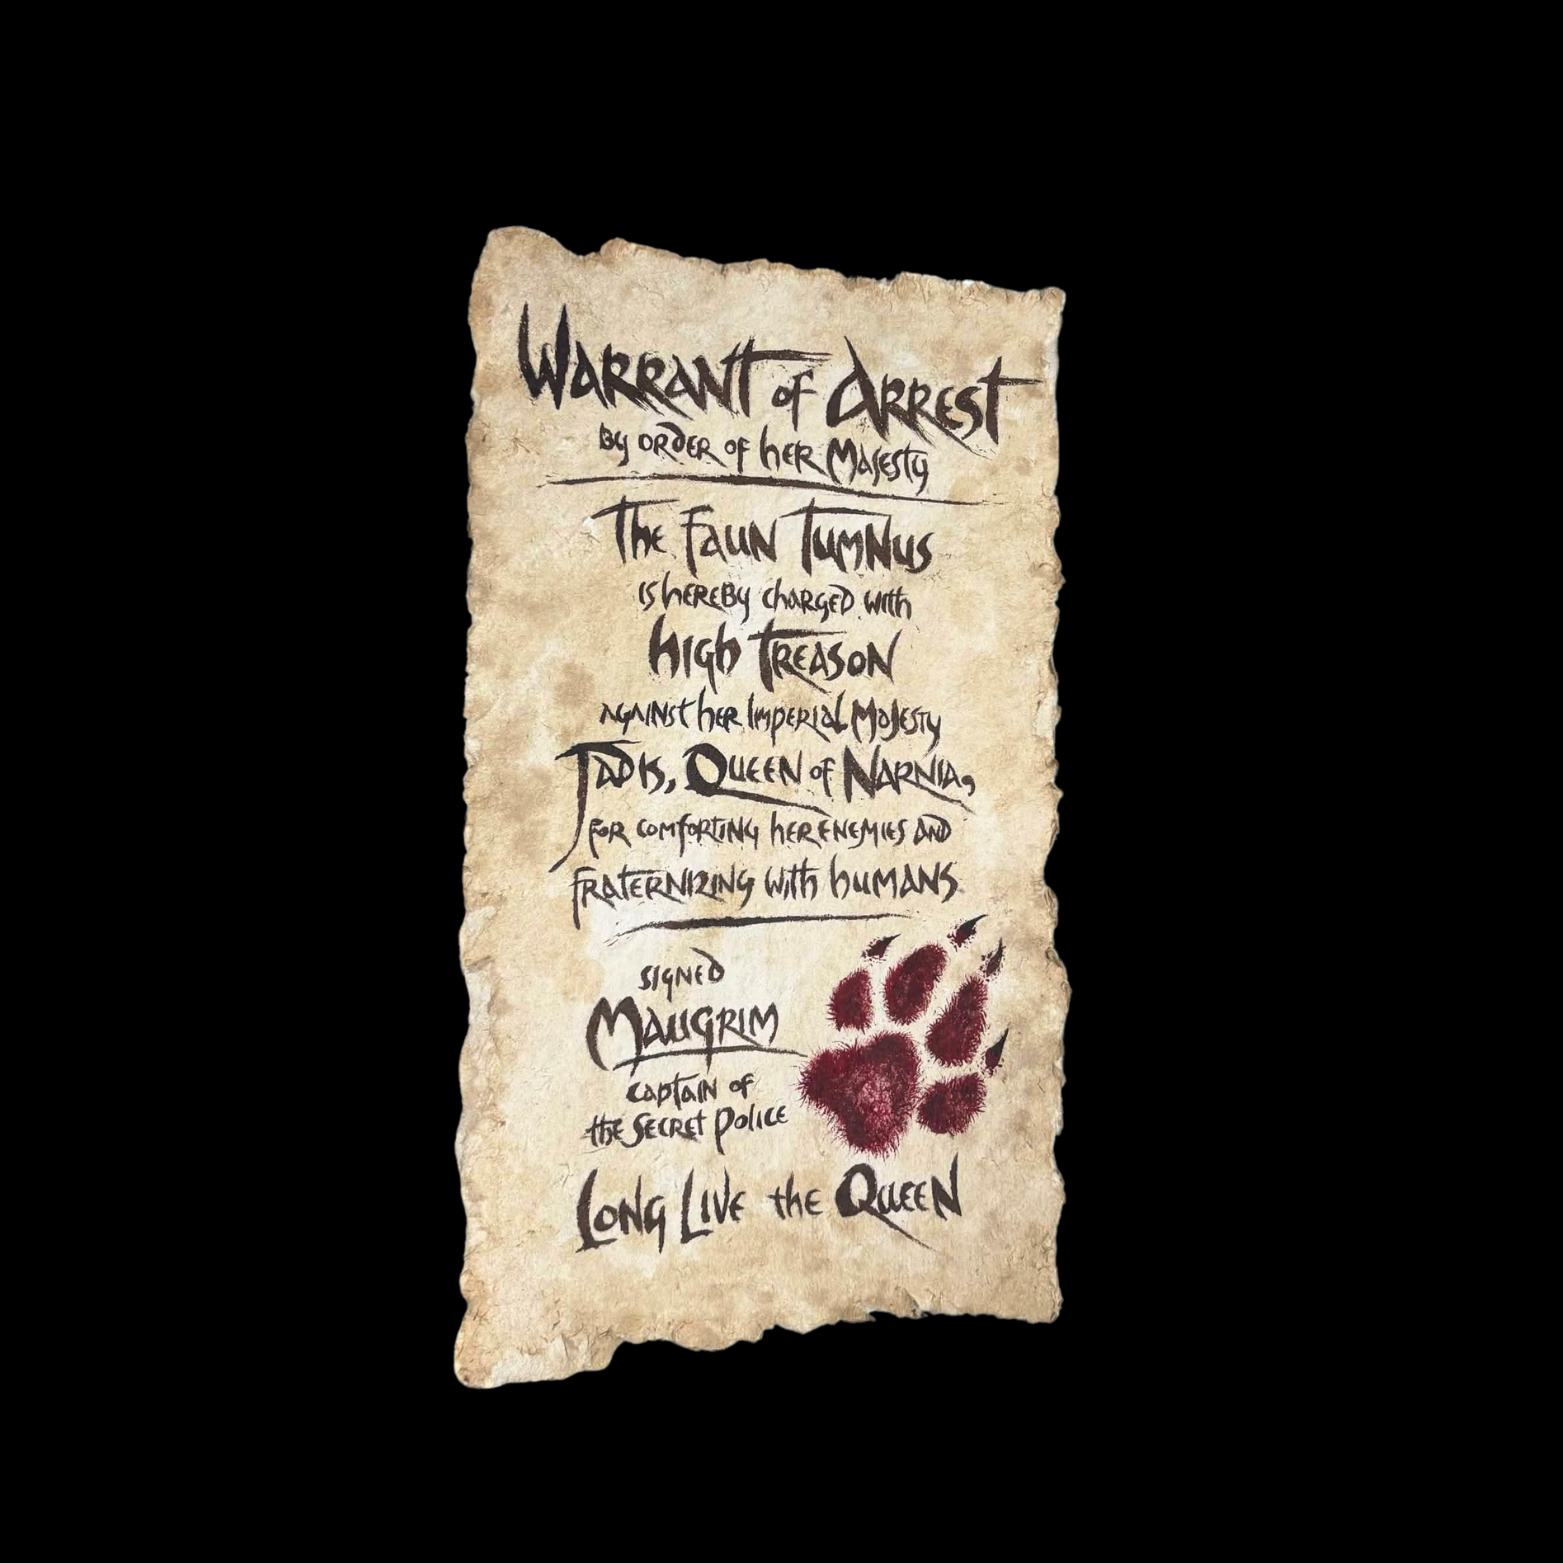 Warrant of Arrest
By order of her Majesty
The Faun Tumnus
is hereby charged with
high Treason
against her Imperial Majesty
Jadis, Queen of Narnia,
for comforting her enemies and
fraternizing with humans
signed
Maugrim
captain of
the Secret Police
Long Live the Queen